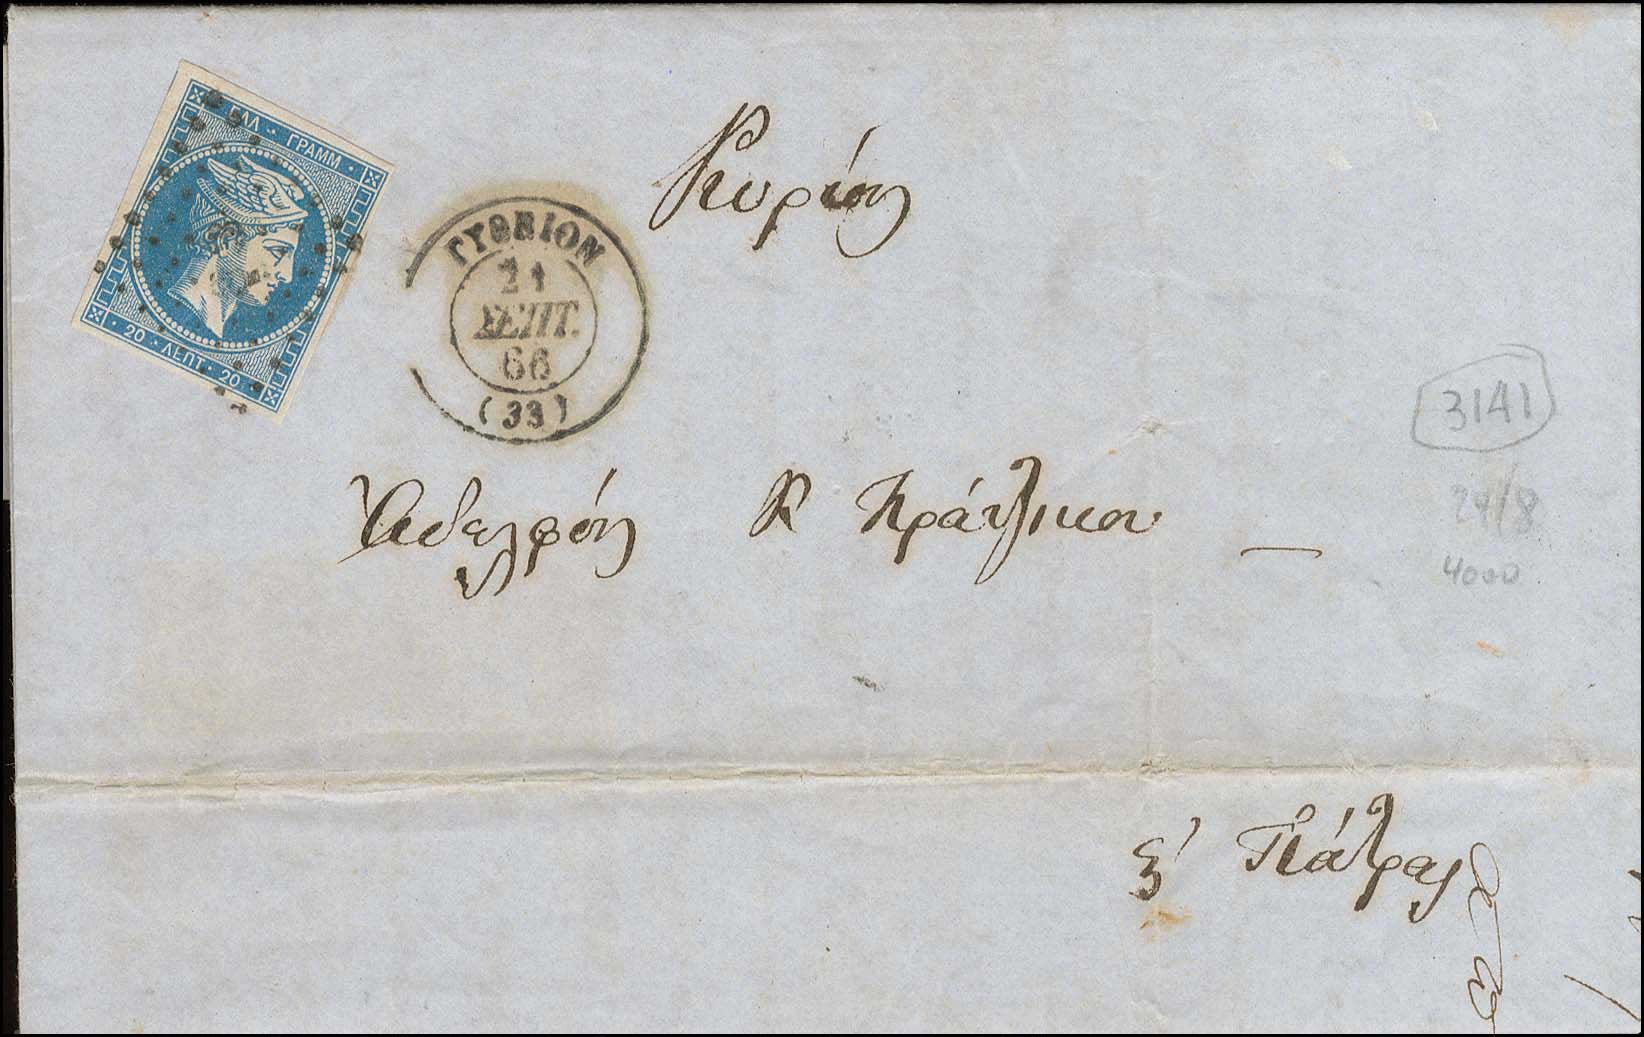 ΕΛΛ · ΓΡΑΜΜ ·
· 20 · ΛΕΠΤ · 20 ·
ΓΥΘΕΙΟΝ
21
ΣΕΠΤ.
66
(33)
Κυρίους
Ἀδελφούς
3141
29/8
4000
Πάτρας